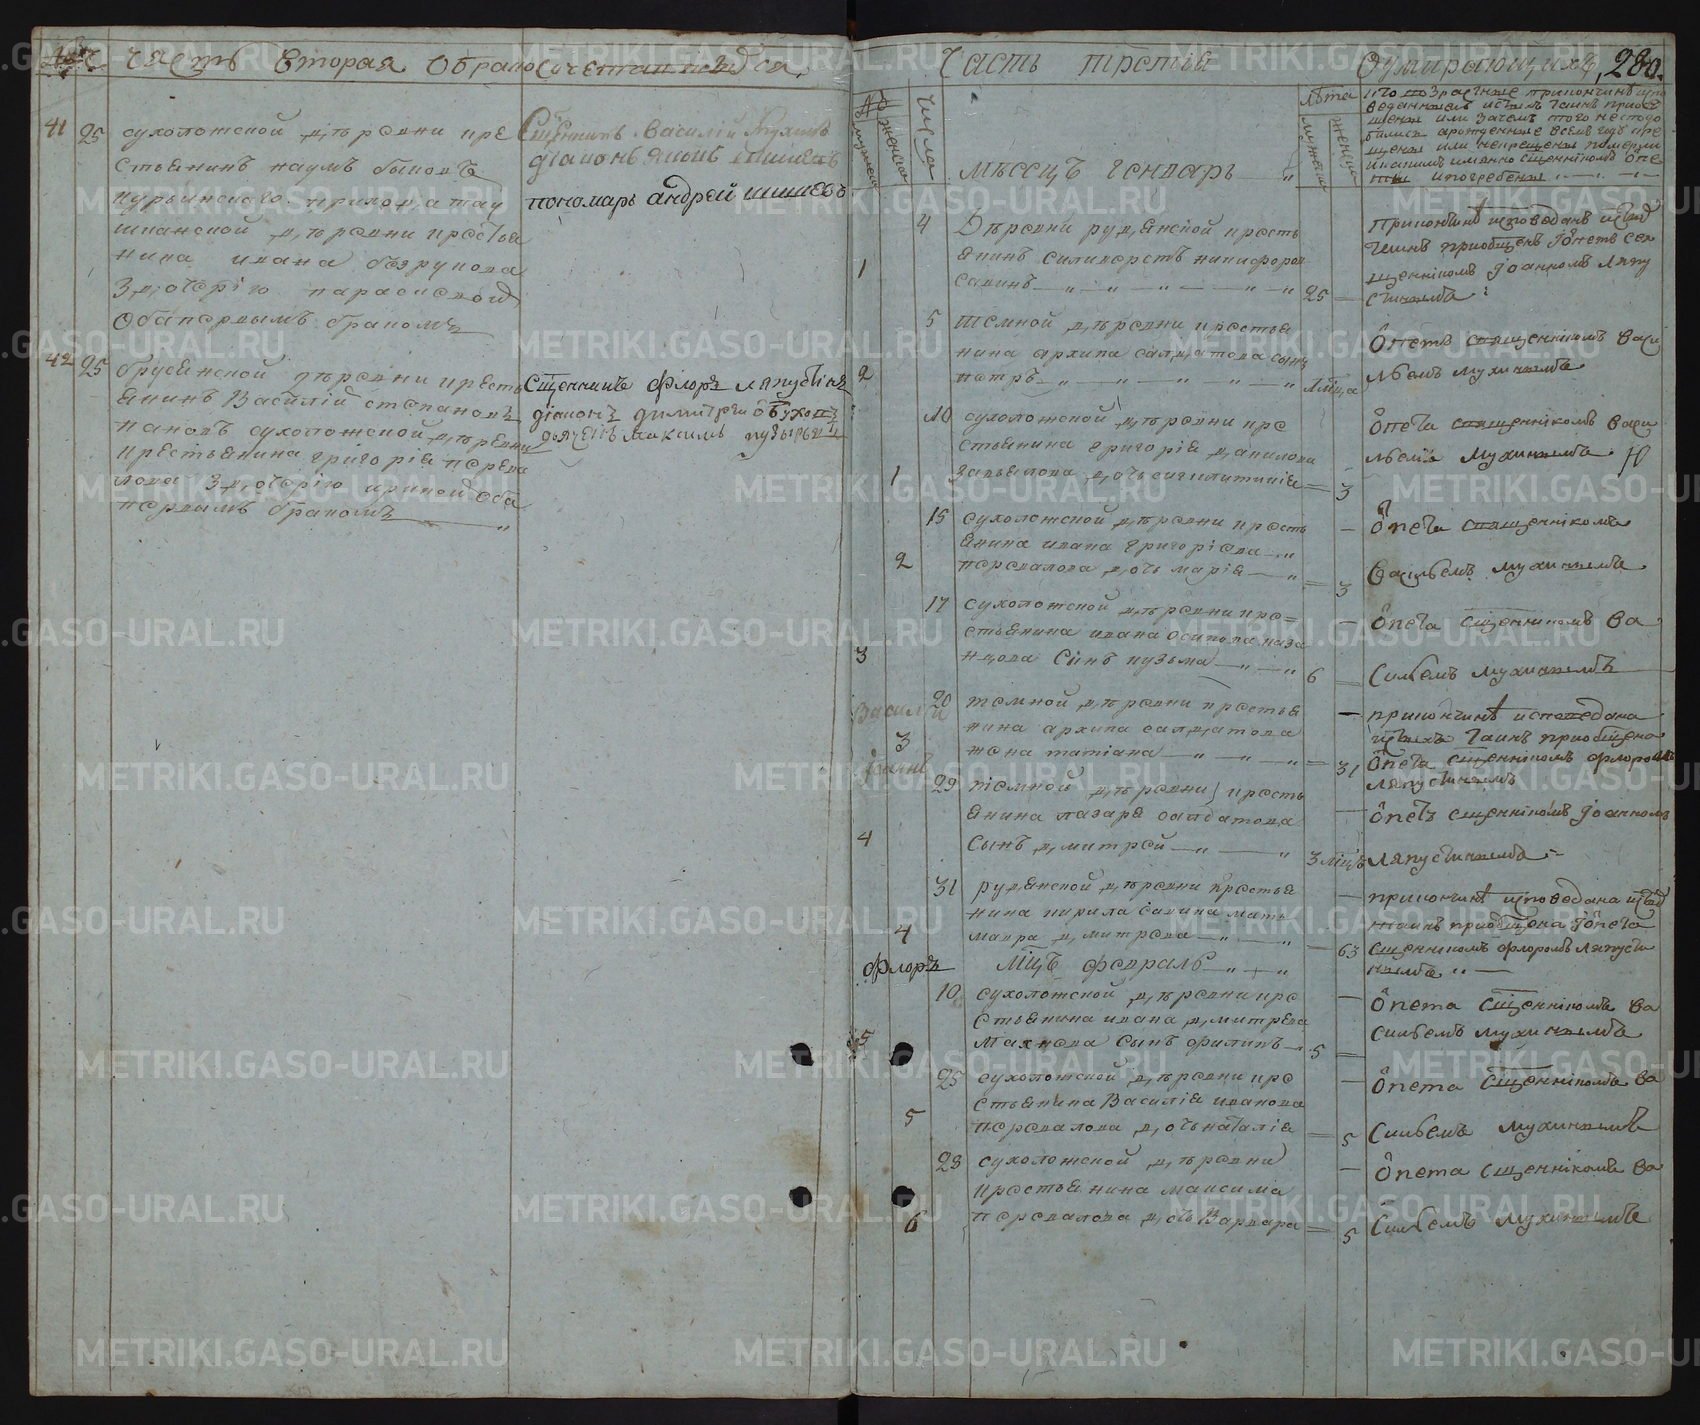 Часть вторая о бракосочетавшихся
41 25 сухоложской деревни кре
стьянинъ наумъ быковъ
курьинскаго прихода тау
шканской деревни крестья
нина ивана безрукова
З дочерію параскевою
Оба первымъ бракомъ
Священникъ Василій Мухинъ
діаконъ
пономарь андрей шишевъ
42 25 брусянской деревни кресть
янинъ Василій степановъ
пановъ сухоложской деревни
крестьянина григорія перева
лова З дочерію ириною Оба
первымъ бракомъ
Сщенникъ Флоръ Ляпустинъ
діаконъ димитрей Обуховъ
дьячекъ Максимъ пузыревъ
Часть третья Оумирающихъ 280.
Числа
мужеска
женска
Лѣта
мужеска
женска
мѣсецъ генварь
4 Деревни рудянской кресть
1 янинъ силиверстъ никифоровъ
савинъ 25
приключинѣ исповеданъ и святыхъ
Таинъ приобщенъ и отпетъ свя
щенникомъ Іоанномъ Ляпу
стинымъ
5 темной деревни крестья
нина архипа салдатова сынъ
2 петръ 1 мца
Опетъ священникомъ Васи
льемъ мухинымъ
10 сухоложской деревни кре
стьянина григорія данилова
1 завьялова дочь сигклитикія 3
Опета священникомъ Васи
льемъ Мухинымъ
15 сухоложской деревни кресть
янина ивана григоріева
2 перевалова дочь марія 3
Опета священникомъ
Васильемъ мухинымъ
17 сухоложской деревни кре=
стьянина ивана осипова каза
3 нцова Сынъ кузьма 6
Опета сщенникомъ Ва
сильемъ мухинымъ
Василій
20 темной деревни крестья
нина архипа салдатова
3 жена татіана 31
приключинѣ исповедана
святыхъ Таинъ приобщена
Опета сщенникомъ флоромъ
Ляпустинымъ
Іоаннъ
29 темной деревни кресть
янина лазаря салдатова
4 Сынъ дмитрей 3 мцъ
Опетъ сщенникомъ Іоанномъ
Ляпустинымъ
31 рудянской деревни крестья
нина кирила савина мать
4 мавра дмитрева 63
приключинѣ исповедана и святыхъ
таинъ приобщена и опета
сщенникомъ флоромъ Ляпусти
нымъ
Флоръ
мцъ февраль
10 сухоложской деревни кре
стьянина ивана дмитрева
5 Махнева Сынъ филипъ 5
Опета сщенникомъ Ва
сильемъ мухинымъ
25 сухоложской деревни кре
стьянина Василія иванова
5 перевалова дочь наталія 5
Опета сщенникомъ Ва
сильемъ мухинымъ
28 сухоложской деревни
крестьянина максима
6 перевалова дочь Варвара 5
Опета сщенникомъ Ва
сильемъ мухинымъ
METRIKI.GASO-URAL.RU